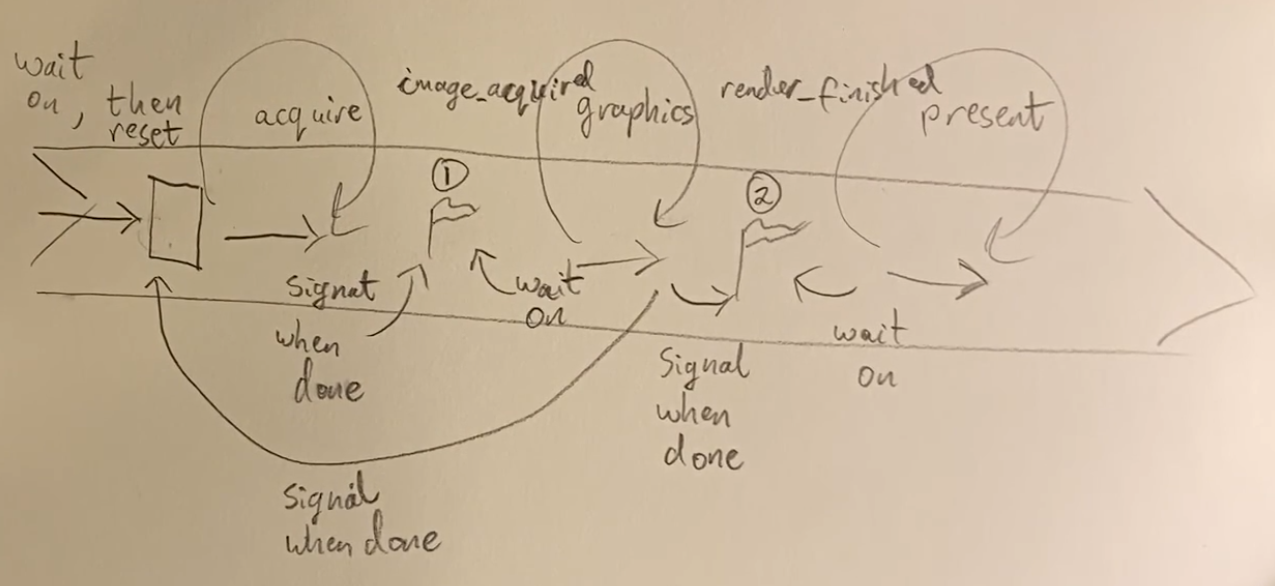 wait
on, then
reset
acquire
image_acquired
graphics
render_finished
present
①
②
signal
when
done
wait
on
signal
when
done
wait
on
signal
when done